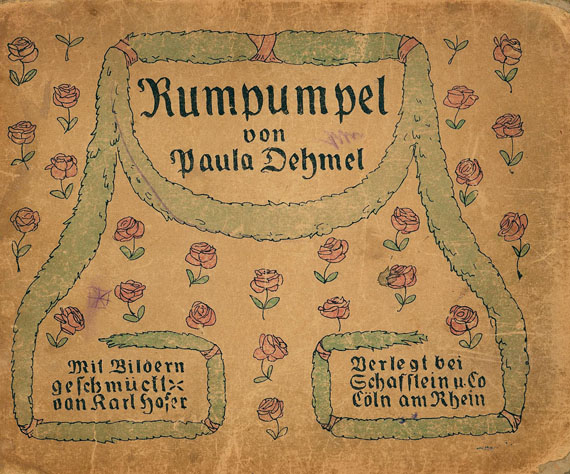 Rumpumpel
von
Paula Dehmel
Mit Bildern
geschmückt
von Karl Hofer
Verlegt bei
Schafstein u. Co
Cöln am Rhein